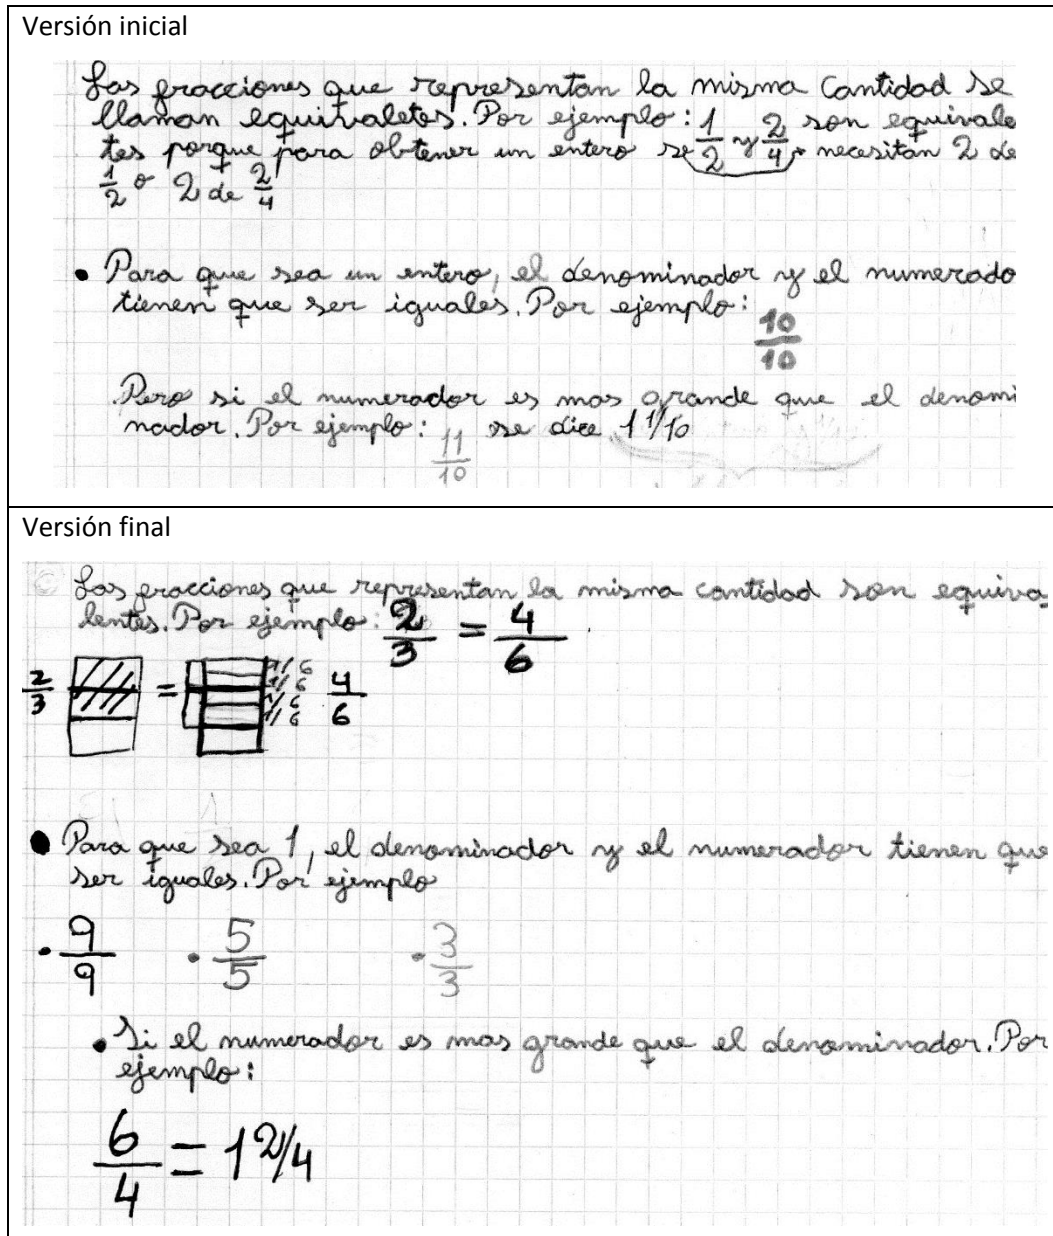 Versión inicial
Las fracciones que representan la misma cantidad se
llaman equivaletes. Por ejemplo: 1/2 y 2/4 son equivale
tes porque para obtener un entero se necesitan 2 de
1/2 o 2 de 2/4
• Para que sea un entero, el denominador y el numerado
tienen que ser iguales. Por ejemplo: 10/10
Pero si el numerador es mas grande que el denomi
nador. Por ejemplo: 11/10 se dice 1 1/10
Versión final
Las fracciones que representan la misma cantidad son equiva
lentes. Por ejemplo: 2/3 = 4/6
2/3 = 1/6 1/6 1/6 1/6 4/6
• Para que sea 1, el denominador y el numerador tienen que
ser iguales. Por ejemplo
• 9/9 • 5/5 • 3/3
• Si el numerador es mas grande que el denominador. Por
ejemplo:
6/4 = 1 2/4